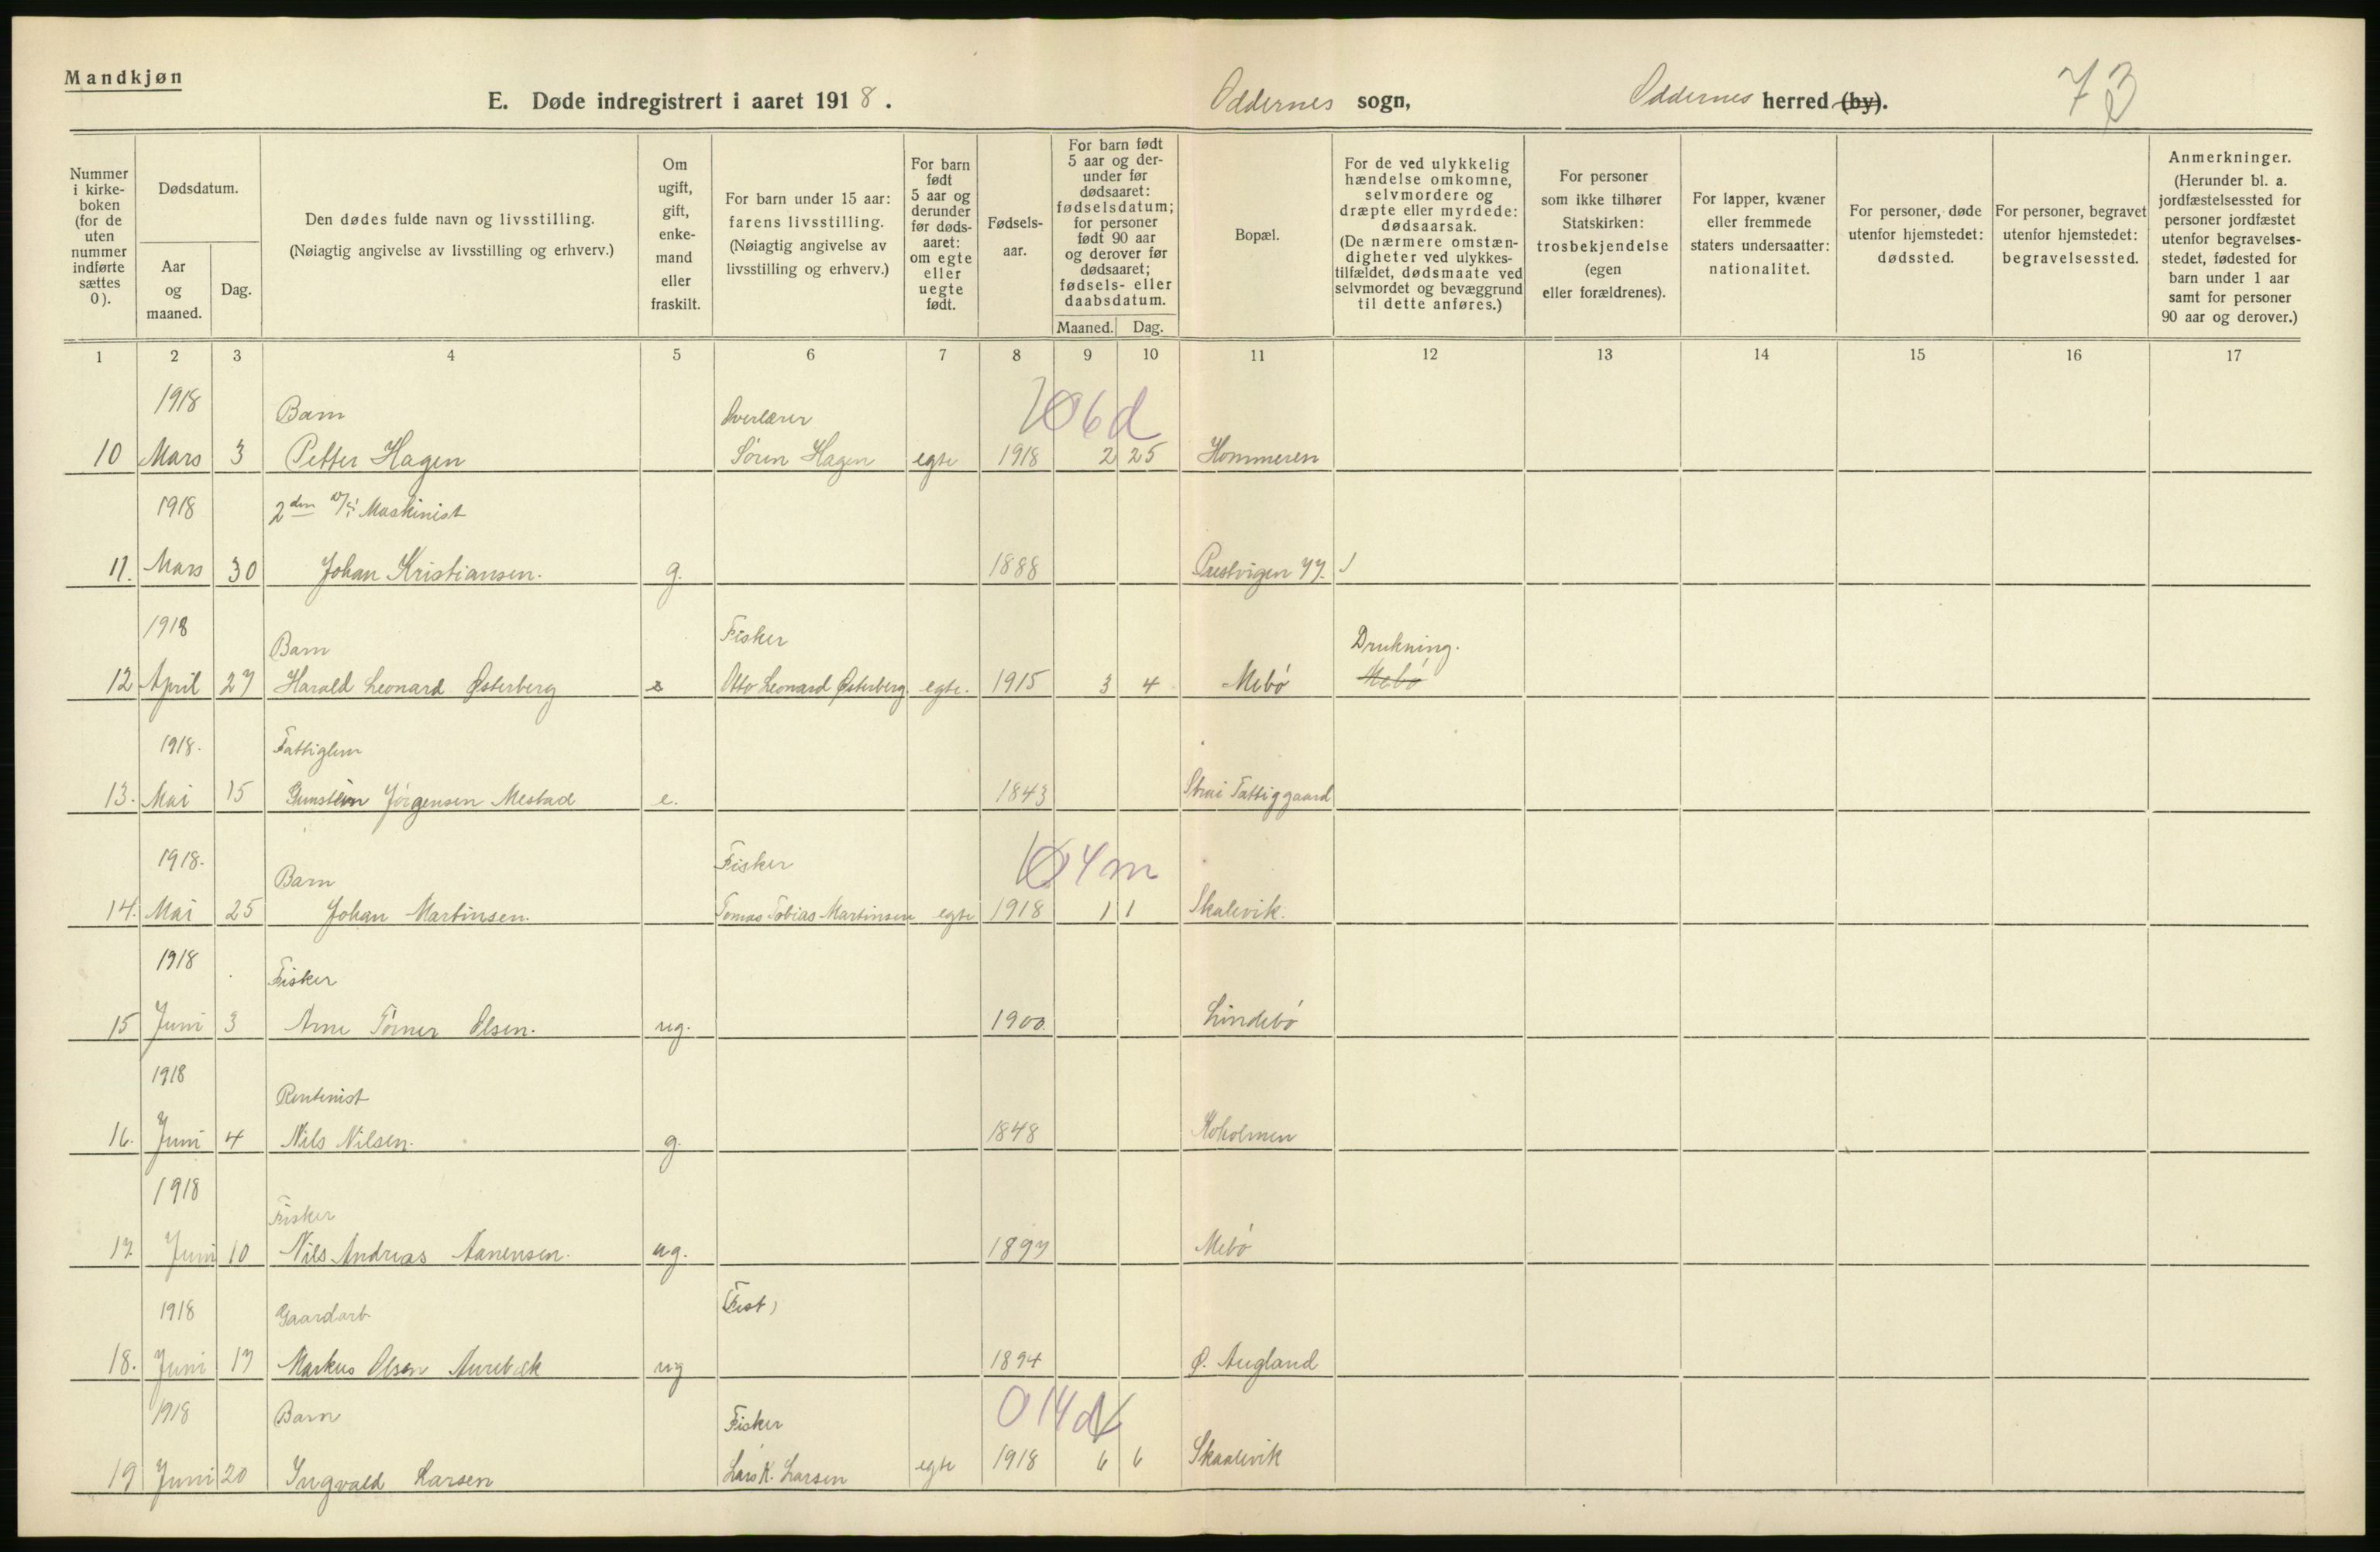 Mandkjøn
E. Døde indregistrert i aaret 1918.
Oddernes sogn,
Oddernes herred (by).
73
Nummer i kirkeboken (for de uten nummer indførte sættes 0).
Dødsdatum.
Aar og maaned.
Dag.
Den dødes fulde navn og livsstilling.
(Nøiagtig angivelse av livsstilling og erhverv.)
Om ugift, gift, enkemand eller fraskilt.
For barn under 15 aar: farens livsstilling.
(Nøiagtig angivelse av livsstilling og erhverv.)
For barn født 5 aar og derunder før dødsaaret: om egte eller uegte født.
Fødselsaar.
For barn født 5 aar og derunder før dødsaaret: fødselsdatum; for personer født 90 aar og derover før dødsaaret; fødsels- eller daabsdatum.
Maaned. Dag.
Bopæl.
For de ved ulykkelig hændelse omkomne, selvmordere og dræpte eller myrdede: dødsaarsak.
(De nærmere omstændigheter ved ulykkestilfældet, dødsmaate ved selvmordet og bevæggrund til dette anføres.)
For personer som ikke tilhører Statskirken: trosbekjendelse (egen eller forældrenes).
For lapper, kvæner eller fremmede staters undersaatter: nationalitet.
For personer, døde utenfor hjemstedet: dødssted.
For personer, begravet utenfor hjemstedet: begravelsessted.
Anmerkninger.
(Herunder bl. a. jordfæstelsessted for personer jordfæstet utenfor begravelsesstedet, fødested for barn under 1 aar samt for personer 90 aar og derover.)
1 2 3 4 5 6 7 8 9 10 11 12 13 14 15 16 17
1918 Barn Overlærer 6d
10 Mars 3 Petter Hagen Sören Hagen egte 1918 2 25 Hommeren
1918 2den Maskinist
11. Mars 30 Johan Kristiansen. g. 1888
1918 Barn Fisker Drukning.
12 April 27 Harald Leonard Østerberg Otto Leonard Østerberg. egte. 1915 3 4 Mebö Mebö
1918. Fattiglem
13. Mai 15 Gunstein Jörgensen Mestad e. 1843 Strai Fattiggaard
1918. Barn Fisker 4m
14. Mai 25 Johan Martinsen. Tomas Tobias Martinsen egte 1918 1 1 Skalevik.
1918 Fisker
15 Juni 3 Arne Törner Olsen. ug. 1900. Lindebö
1918 Rentenist
16. Juni 4 Nils Nilsen. g. 1848 Koholmen
1918 Fisker
17. Juni 10 Nils Andreas Aanensen. ug. 1897 Mebö
1918 Gaardarb.
18. Juni 17 Markus Olsen Aurebæk ug 1894 Ø. Augland
1918 Barn Fisker 0 14d
19 Juni 20 Ingvald Larsen Lars K. Larsen egte 1918 6 6 Skaalevik